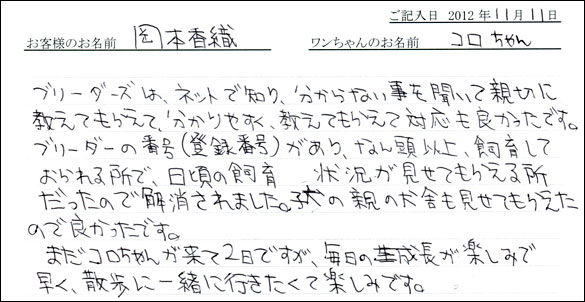 ご記入日 2012年11月11日
お客様のお名前 岡本香織 ワンちゃんのお名前 コロちゃん
ブリーダーズは、ネットで知り、分からない事を聞いて親切に
教えてもらえて、分かりやすく、教えてもらえて対応も良かったです。
ブリーダーの番号(登録番号)があり、なん頭以上、飼育して
おられる所で、日頃の飼育 状況が見せてもらえる所
だったので解消されました。子犬の親の犬舎も見せてもらえた
ので良かったです。
まだコロちゃんが来て2日ですが、毎日の生成長が楽しみで
早く、散歩に一緒に行きたくて楽しみです。